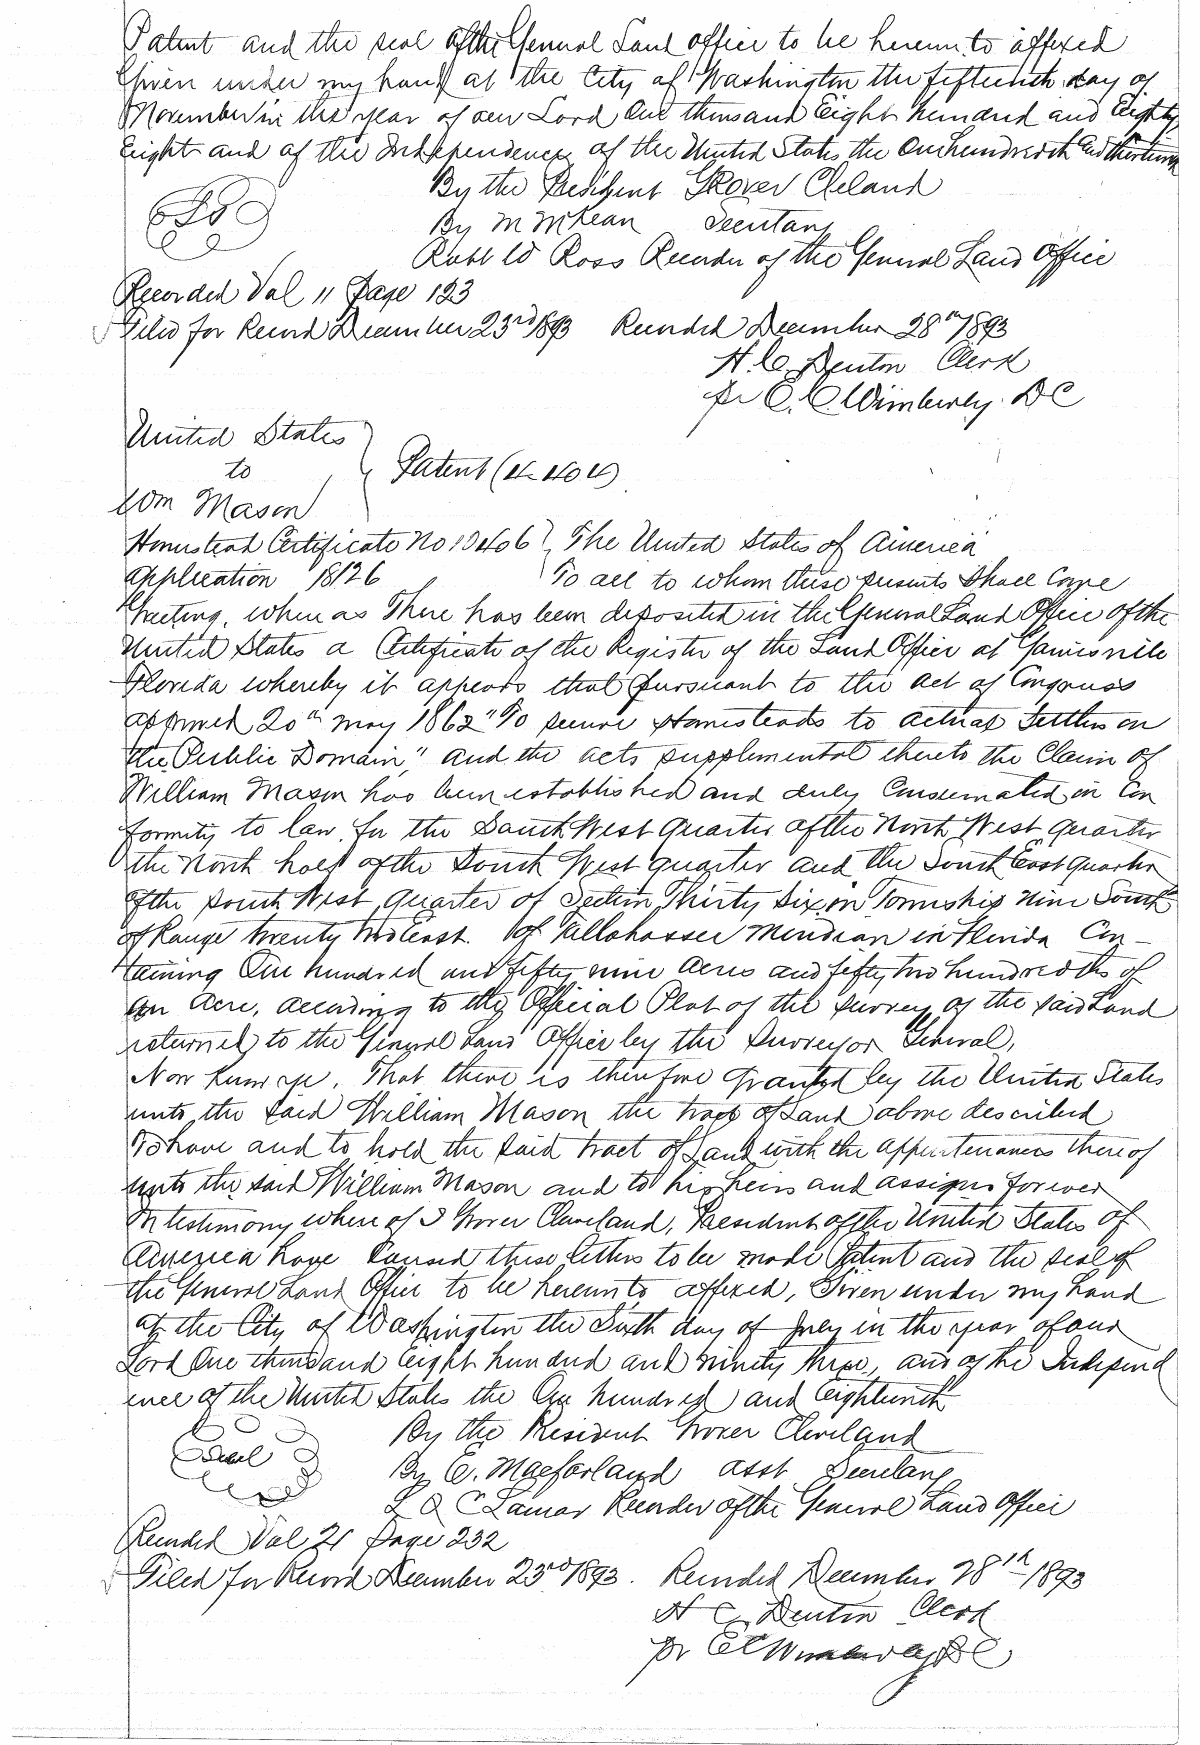 Patent and the seal of the General Land office to be hereunto affixed
Given under my hand at the City of Washington the fifteenth day of
November in the year of our Lord One thousand Eight hundred and Eighty
Eight and of the Independence of the United States the One hundredth and thirteenth
By the President Grover Cleland
By M McKean Secretary
Robt W Ross Recorder of the General Land Office
Recorded Vol 11 Page 123
Filed for Record December 23rd 1893 Recorded December 28th 1893
H. C. Denton Clerk
pr C. C. Wimberly. DC
United States
to
Wm Mason
Patent (4-404)
Homestead Certificate No 10406 The United States of America
Application 18126 To all to whom these presents Shall Come
Greeting, where as There has been deposited in the General Land Office of the
United States a Certificate of the Register of the Land Office at Gainesville
Florida whereby it appears that pursuant to the act of Congress
approved 20th May 1862 "To secure Homesteads to actual Settlers on
the Public Domain," and the acts supplemental thereto the Claim of
William Mason has been established and duly Consumated in Con
formity to law for the South West Quarter of the North West Quarter
the North half of the South West quarter and the South East Quarter
of the South West Quarter of Section Thirty Six in Township Nine South
of Range twenty two East. of Tallahassee Meridian in Florida Con-
taining One hundred and fifty nine Acres and fifty two hundredths of
an Acre, according to the Official Plat of the Survey of the said Land
returned to the General Land Office by the Surveyor General,
Now Know ye, That there is therefore granted by the United States
unto the said William Mason the tract of Land above described
To have and to hold the said tract of Land with the appurtenances there of
unto the said William Mason and to his heirs and assigns forever
In testimony where of I Grover Cleveland, President of the United States of
America have Caused these letters to be made Patent and the seal of
the General Land Office to be hereunto affixed, Given under my hand
at the City of Washington the Sixth day of July in the year of our
Lord One thousand Eight hundred and ninety three, and of the Independ
ence of the United States the One hundred and Eighteenth
By the President Grover Cleveland
Seal
By E. Macfarland asst Secretary
L Q C Lamar Recorder of the General Land Office
Recorded Vol 21 Page 232
Filed for Record December 23rd 1893. Recorded December 28th 1893
H C Denton Clerk
pr C C Wimberly DC